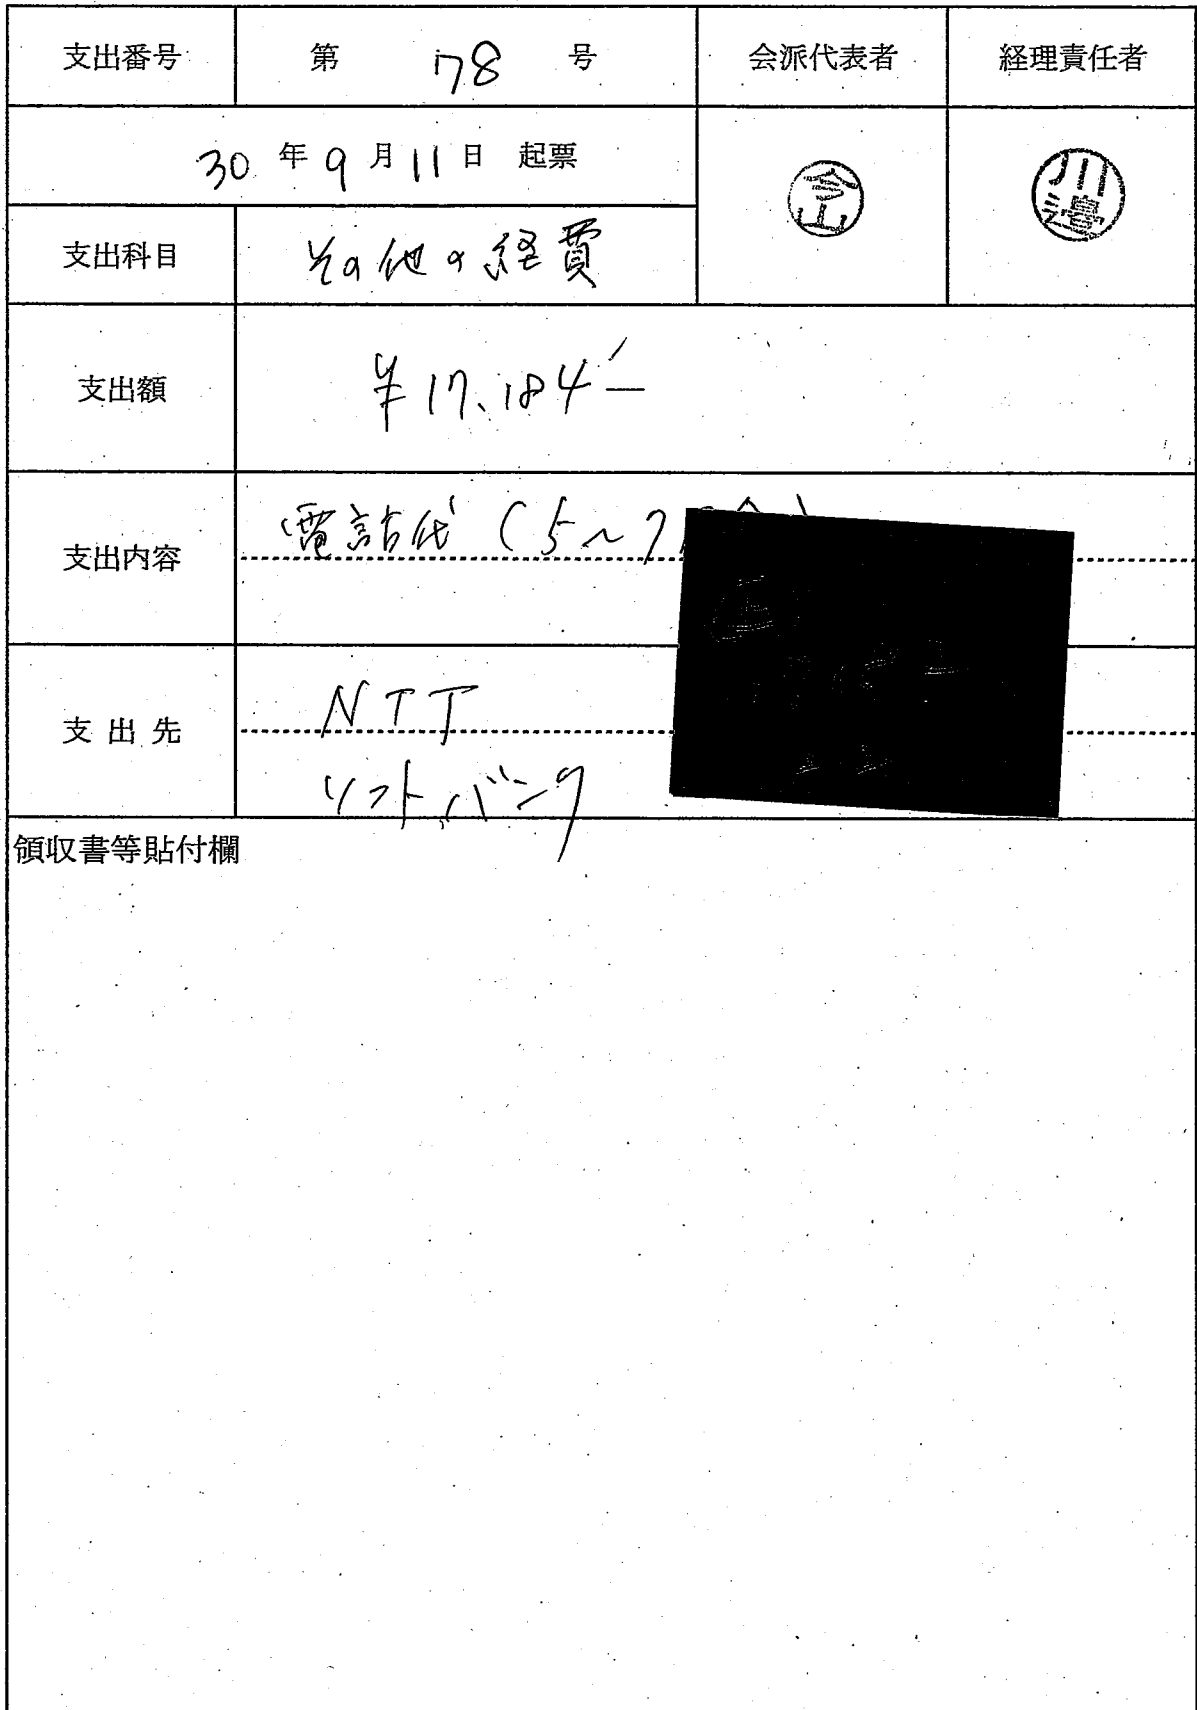 支出番号 第 78 号 会派代表者 経理責任者
30 年 9 月 11 日 起票
今山 川邉
支出科目 その他の経費
支出額 ¥17,184-
支出内容 電話代 (5~7
支出先 NTT
ソフトバンク
領収書等貼付欄